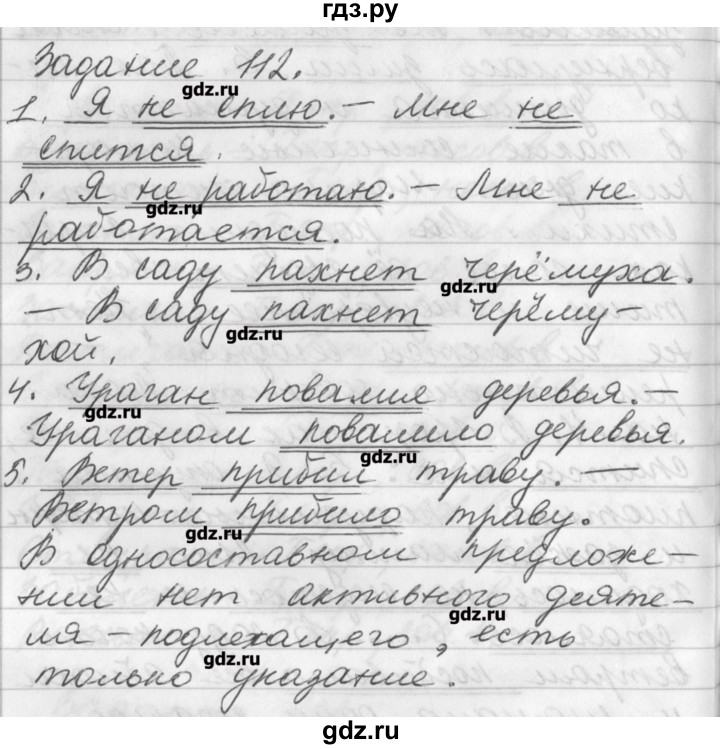 гдз.ру
Задание 112.
gdz.ru
1. Я не сплю. – Мне не
спится.
2. Я не работаю. – Мне не
gdz.ru
работается.
3. В саду пахнет черёмуха.
gdz.ru
– В саду пахнет черёму-
gdz.ru
хой.
4. Ураган повалил деревья. –
gdz.ru
Ураганом повалило деревья.
gdz.ru
5. Ветер прибил траву. –
Ветром прибило траву.
gdz.ru
В односоставном предложе-
нии нет активного деяте-
gdz.ru
ля – подлежащего, есть
gdz.ru
только указание.
gdz.ru